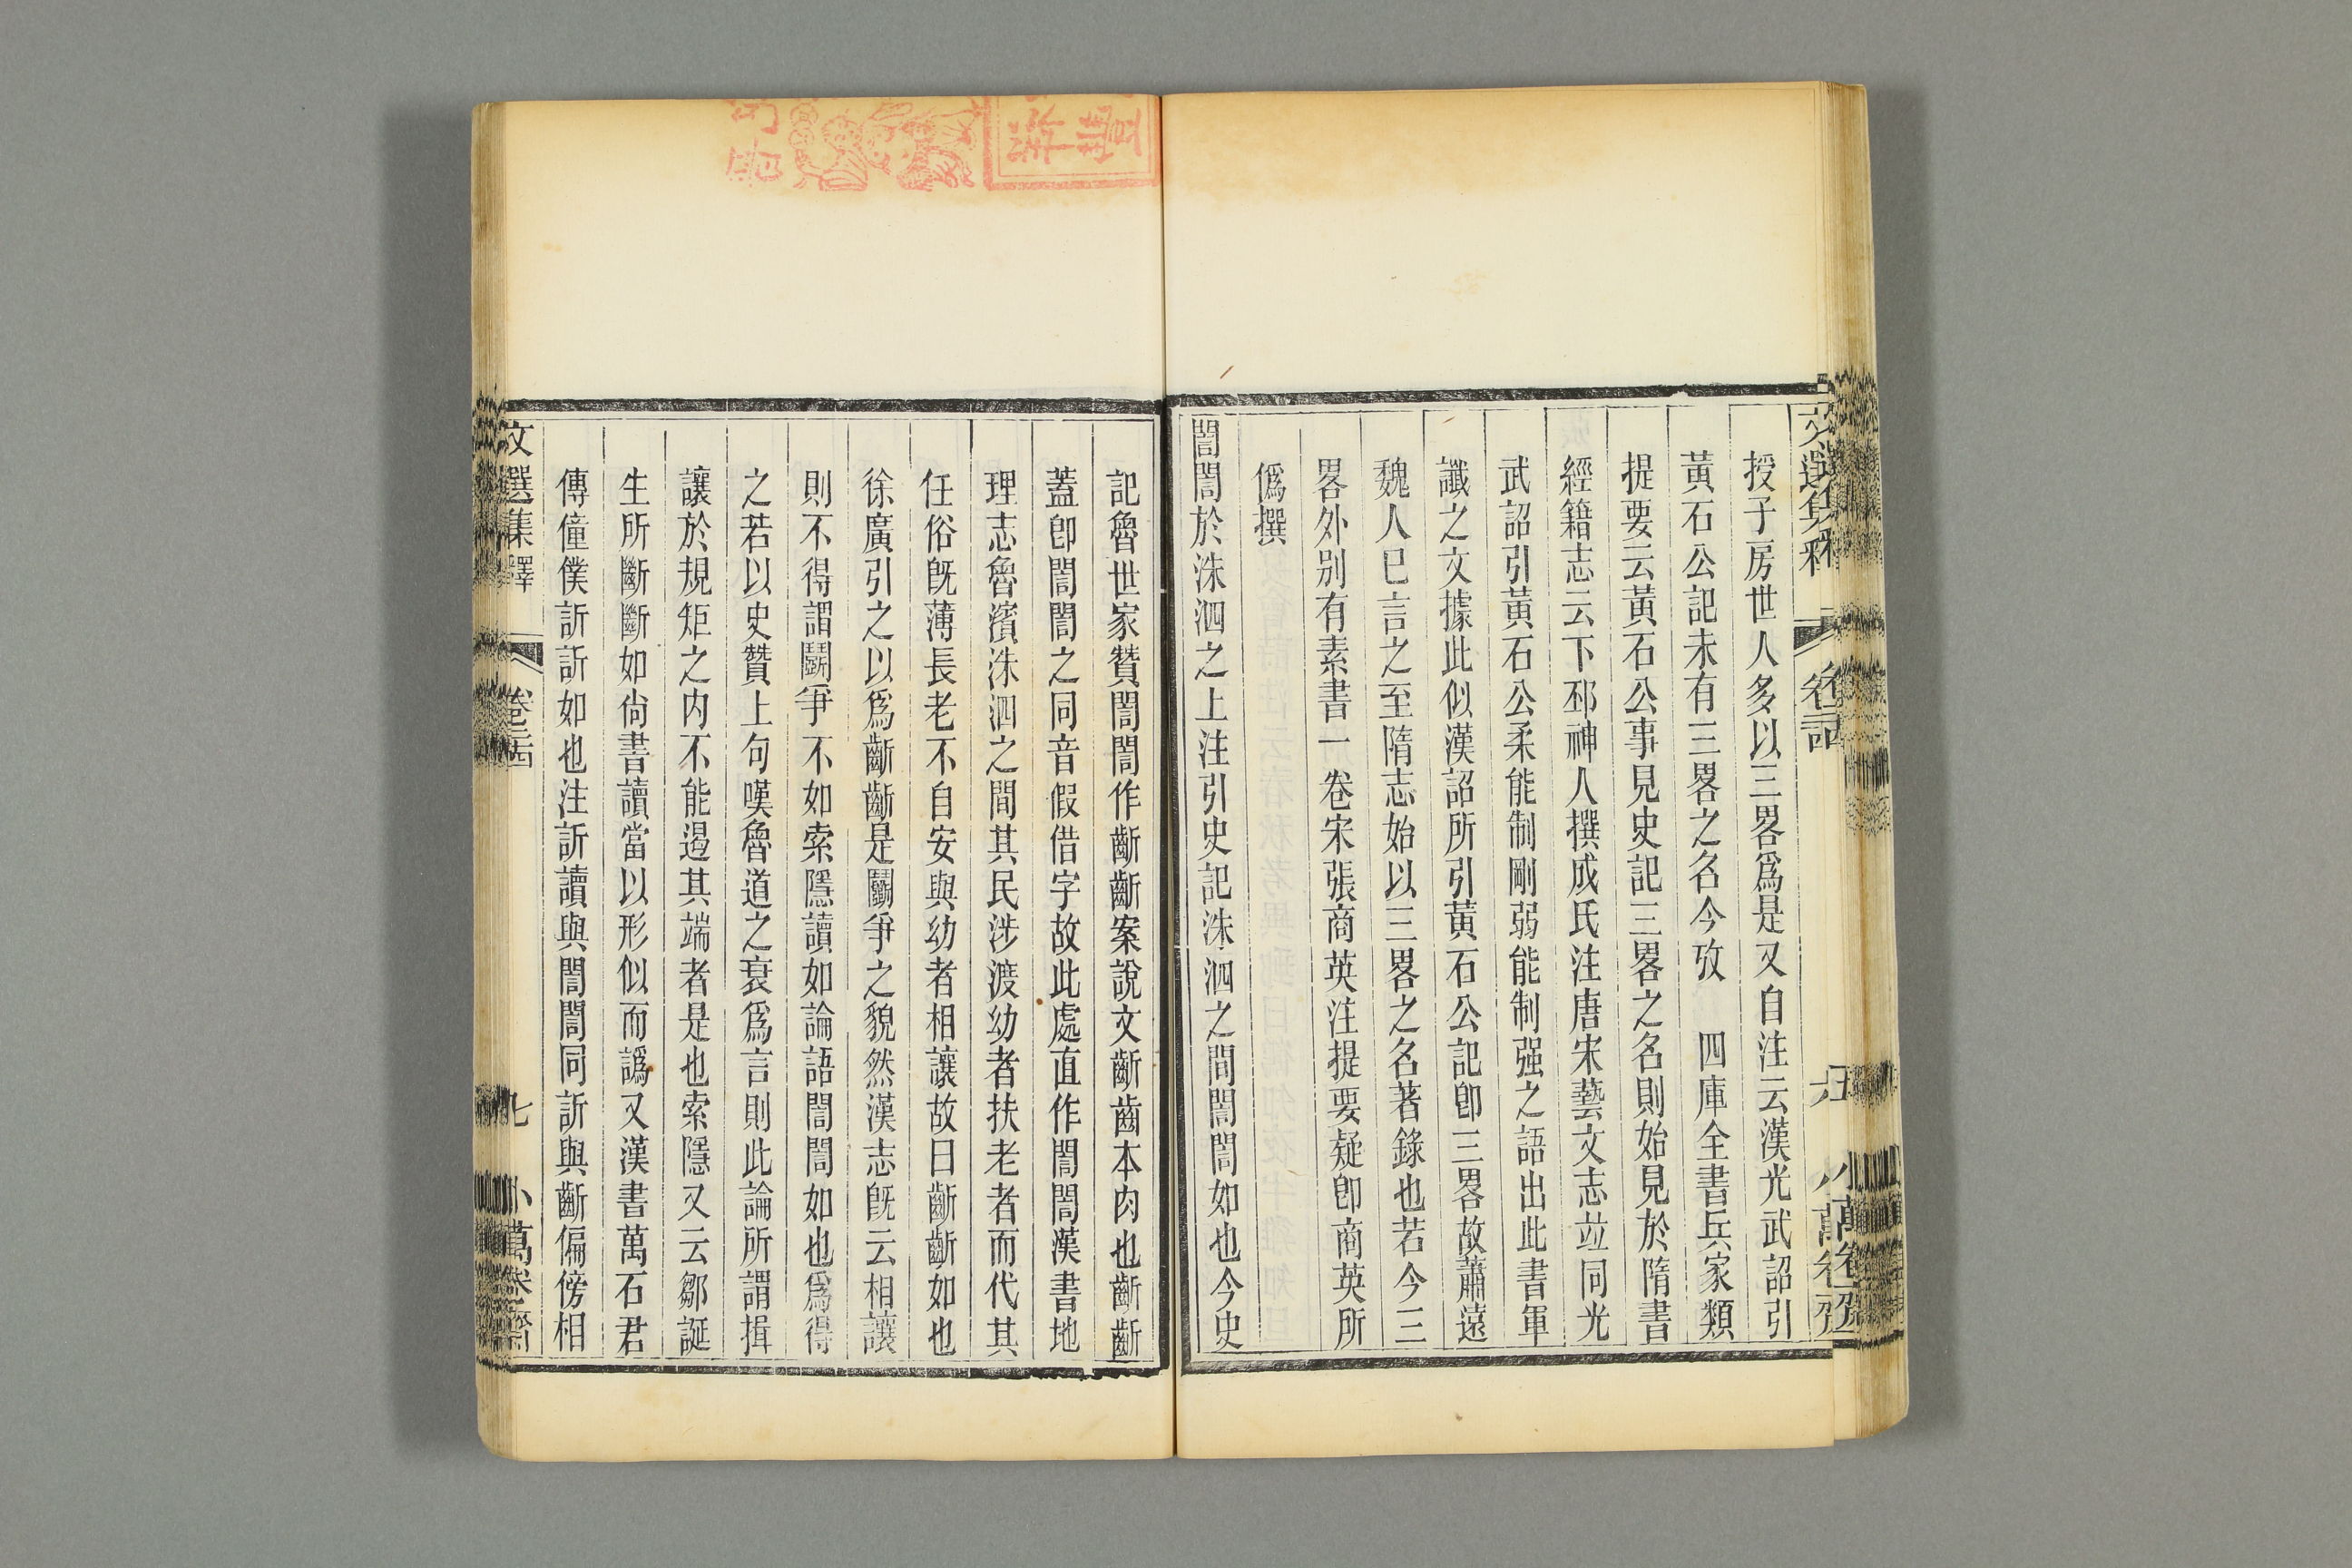 授子房世人多以三畧爲是又自注云漢光武詔引
黃石公記未有三畧之名今攷　四庫全書兵家類
提要云黃石公事見史記三畧之名則始見於隋書
經籍志云下邳神人撰成氏注唐宋藝文志竝同光
武詔引黃石公柔能制剛弱能制强之語出此書軍
讖之文據此似漢詔所引黃石公記卽三畧故蕭遠
魏人巳言之至隋志始以三畧之名著錄也若今三
畧外别有素書一卷宋張商英注提要疑卽商英所
僞撰
誾誾於洙泗之上注引史記洙泗之間誾誾如也今史
記魯世家贊誾誾作齗齗案說文齗齒本肉也齗齗
蓋卽誾誾之同音假借字故此處直作誾誾漢書地
理志魯濱洙泗之間其民涉渡幼者扶老者而代其
任俗旣薄長老不自安與幼者相讓故曰齗齗如也
徐廣引之以爲齗齗是鬭爭之貌然漢志旣云相讓
則不得謂鬭爭不如索隱讀如論語誾誾如也爲得
之若以史贊上句嘆魯道之衰爲言則此論所謂揖
讓於規矩之内不能遏其端者是也索隱又云鄒誕
生所斷斷如尙書讀當以形似而譌又漢書萬石君
傳僮僕訢訢如也注訢讀與誾誾同訢與齗偏傍相
文選集釋　卷二十四　七　小萬卷齋